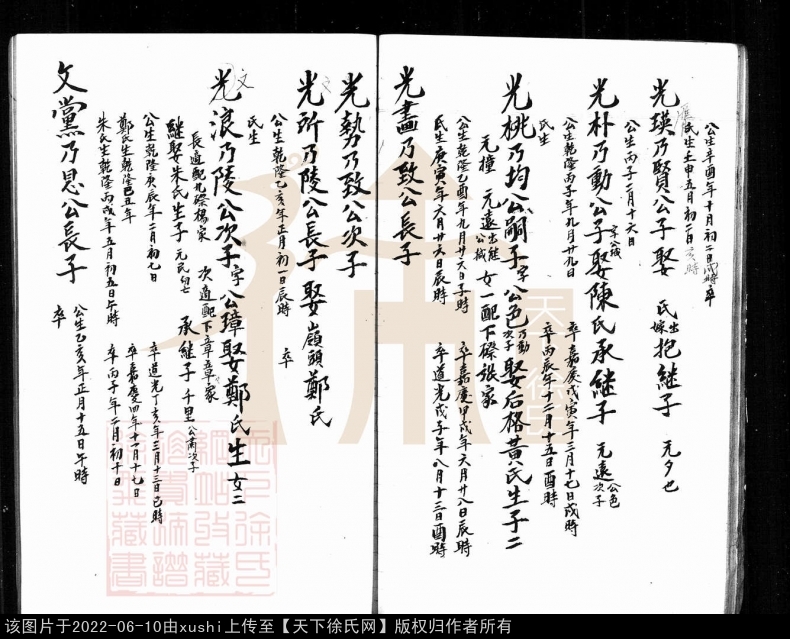 公生辛酉年十月初二日戌時卒
光瑛乃賢公子娶 氏出嫁抱繼子 元夕也
氏生壬申五月初二日亥時
公生丙子二月十六日
光朴乃動公子字公織娶陳氏承繼子 元遠公色次子
公生乾隆丙子年九月廿九日 卒嘉慶戊寅年三月十七日戌時
氏生 卒丙辰年十二月十五日酉時
光桃乃均公嗣子字公色乃動次子娶后格黃氏生子二
元撞 元遠出繼公織 女一配下磜張家
公生乾隆乙酉年九月廿六日子時 卒嘉慶甲戌年六月廿八日辰時
氏生庚寅年六月廿六日辰時 卒道光戊子年八月十三日酉時
光盡乃致公長子
光勢乃致公次子
光所乃陵公長子娶嶺頭鄭氏
公生乾隆乙亥年正月初一日辰時 卒
氏生
文
光浪乃陵公次子字公璋娶鄭氏生女二
長適配九磜楊家 次適配下章章家
繼娶朱氏生子 元民 承繼子 千里公甫次子
公生乾隆庚辰年二月初七日 卒道光丁亥年三月十三日巳時
鄭氏生乾隆己丑年 卒嘉慶四年十一月十七日
朱氏生乾隆丙戌年五月初五日午時 卒丙子年二月初十日
文黨乃恩公長子 公生乙亥年正月十五日午時
卒
天下徐氏
该图片于2022-06-10由xushi上传至【天下徐氏网】版权归作者所有